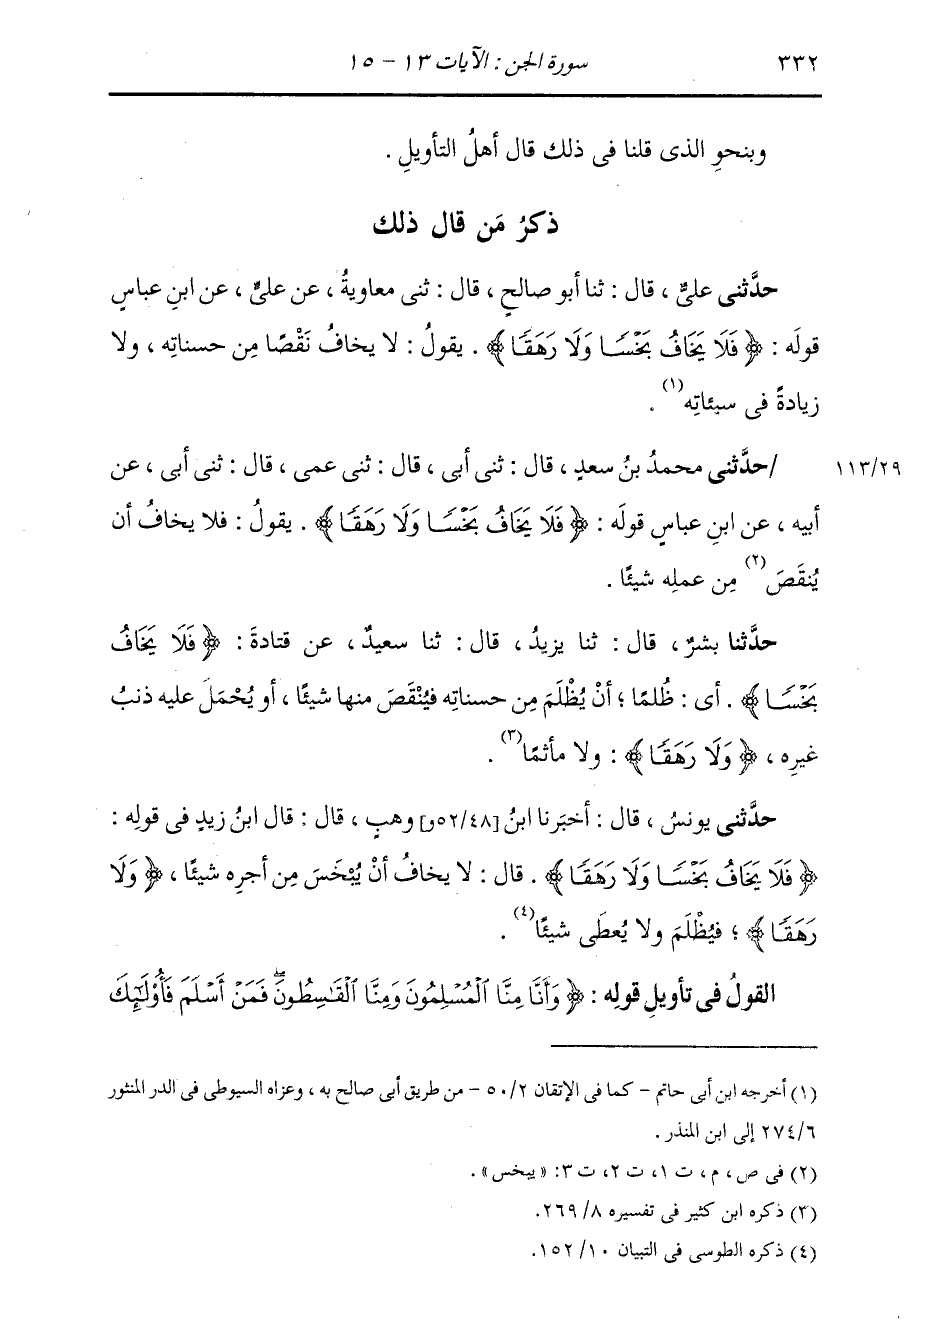 ٣٣٢ سورة الجن : الآيات ١٣ - ١٥
وبنحوِ الذى قلنا فى ذلك قال أهلُ التأويلِ .
ذكرُ مَن قال ذلك
حدَّثنى علىٌّ ، قال : ثنا أبو صالحٍ ، قال : ثنى معاويةُ ، عن علىٍّ ، عن ابنِ عباسٍ
قولَه : ﴿ فَلَا يَخَافُ بَخْسًا وَلَا رَهَقًا ﴾ . يقولُ : لا يخافُ نَقْصًا مِن حسناتِه ، ولا
زيادةً فى سيئاتِه(١) .
١١٣/٢٩ /حدَّثنى محمدُ بنُ سعدٍ ، قال : ثنى أبى ، قال : ثنى عمى ، قال : ثنى أبى ، عن
أبيه ، عن ابنِ عباسٍ قولَه : ﴿ فَلَا يَخَافُ بَخْسًا وَلَا رَهَقًا ﴾ . يقولُ : فلا يخافُ أن
يُنقَصَ(٢) مِن عملِه شيئًا .
حدَّثنا بشرٌ ، قال : ثنا يزيدُ ، قال : ثنا سعيدٌ ، عن قتادةَ : ﴿ فَلَا يَخَافُ
بَخْسًا ﴾ . أى : ظُلمًا ؛ أنْ يُظْلَمَ مِن حسناتِه فيُنْقَصَ منها شيئًا ، أو يُحْمَلَ عليه ذنبُ
غيرِه ، ﴿ وَلَا رَهَقًا ﴾ : ولا مأثمًا(٣) .
حدَّثنى يونسُ ، قال : أخبَرنا ابنُ [٥٢/٤٨و] وهبٍ ، قال : قال ابنُ زيدٍ فى قولِه :
﴿ فَلَا يَخَافُ بَخْسًا وَلَا رَهَقًا ﴾ . قال : لا يخافُ أنْ يُبْخَسَ مِن أجرِه شيئًا ، ﴿ وَلَا
رَهَقًا ﴾ ؛ فيُظْلَمَ ولا يُعطَى شيئًا(٤) .
القولُ فى تأويلِ قولِه : ﴿ وَأَنَّا مِنَّا الْمُسْلِمُونَ وَمِنَّا الْقَاسِطُونَ ۖ فَمَنْ أَسْلَمَ فَأُوْلَٰٓئِكَ
(١) أخرجه ابن أبى حاتم - كما فى الإتقان ٥٠/٢ - من طريق أبى صالح به ، وعزاه السيوطى فى الدر المنثور
٢٧٤/٦ إلى ابن المنذر .
(٢) فى ص ، م ، ت ١، ت ٢، ت ٣: « يبخس » .
(٣) ذكره ابن كثير فى تفسيره ٨/ ٢٦٩.
(٤) ذكره الطوسى فى التبيان ١٠/ ١٥٢.